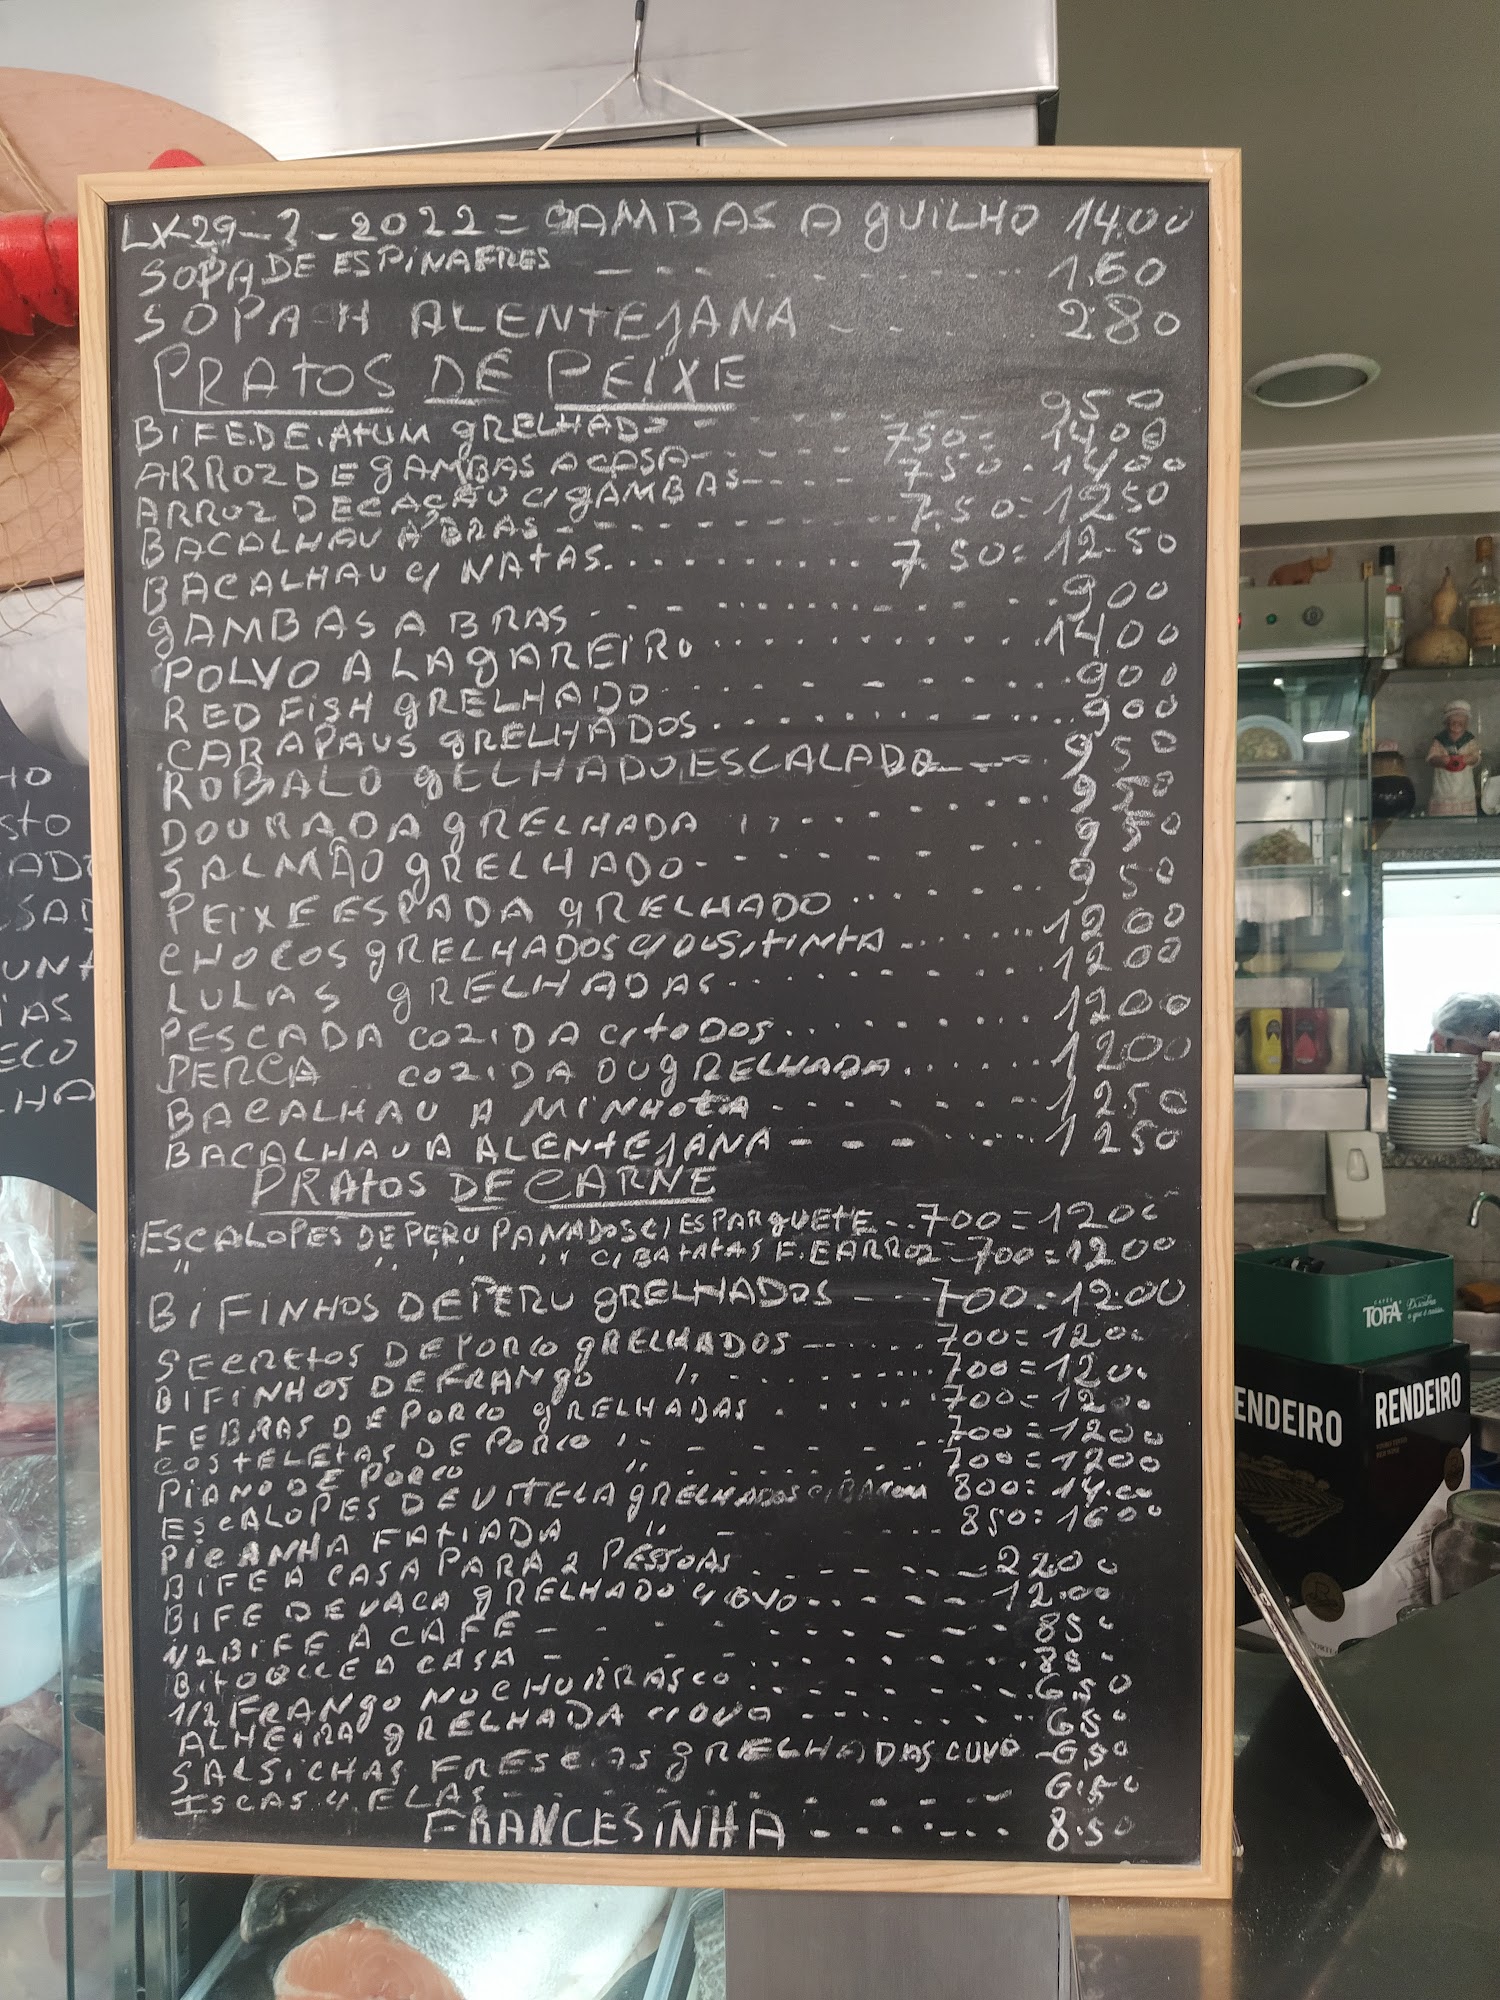 LX-29-7-2022= GAMBAS A gUILHO 14.00
SOPA DE ESPINAFRES - - - - 1.60
SOPA H ALENTEJANA - - - - 2.80
PRATOS DE PEIXE
BIFE.DE.ATUM gRELHADO - - - - 950
ARROZ DE gAMBAS A CASA - - - - 750= 14.00
ARROZ DE CAÇÃO C/ gAMBAS - - - - 750 - 1400
BACALHAU A BRAS - - - - 7.50= 1250
BACALHAU C/ NATAS . . . . 7.50= 12.50
gAMBAS A BRAS - - - - 900
POLVO A LAgAREIRO . . . . 14.00
RED FISH gRELHADO . . . . 900
CARAPAUS gRELHADOS . . . . 900
ROBALO gELHADO/ESCALADO - - - 950
DOURADA gRELHADA 950
SALMÃO gRELHADO - - - - 950
PEIXE ESPADA gRELHADO . . . . 950
CHOCOS gRELHADOS C/OU S/TINTA - - - - 1200
LULAS gRELHADAS . . . . 1200
PESCADA COZIDA C/TODOS . . . . 1200
PERCA COZIDA OU gRELHADA . . . . 1200
BACALHAU A MINHOTA - - - - 1250
BACALHAU A ALENTEJANA - - - - 1250
PRATOS DE CARNE
ESCALOPES DE PERU PANADOS C/ ESPARgUETE - - 700=1200
" " " " C/BATATAS F. E ARROZ=700=1200
BIFINHOS DE PERU gRELHADOS - - - 700=12.00
SECRETOS DE PORCO gRELHADOS - - - 700=1200
BIFINHOS DE FRANgO " - - - - 700=1200
FEBRAS DE PORCO gRELHADAS . . . . 700=1200
COSTELETAS DE PORCO " - - - - 700=1200
PIANO DE PORCO " - - - - 700=1200
ESCALOPES DE VITELA gRELHADOS C/BACON 800=14.00
PICANHA FATIADA " - - - - 850=1600
BIFE A CASA PARA 2 PESSOAS - - - - 2200
BIFE DE VACA gRELHADO C/ OVO - - - - 12.00
1/2 BIFE A CAFE - - - - 850
BITOQUE A CASA - - - - 850
1/2 FRANgO NO CHURRASCO - - - - 650
ALHEIRA gRELHADA C/OVO - - - - 650
SALSICHAS FRESCAS gRELHADAS C/OVO - 650
ISCAS C/ ELAS - - - - 6.50
FRANCESINHA - - - - 8.50
HO
STO
UNA
IAS
ECO
LHA
CAFÉS
TOFA
Descubra
o que é nosso.
ENDEIRO
RENDEIRO